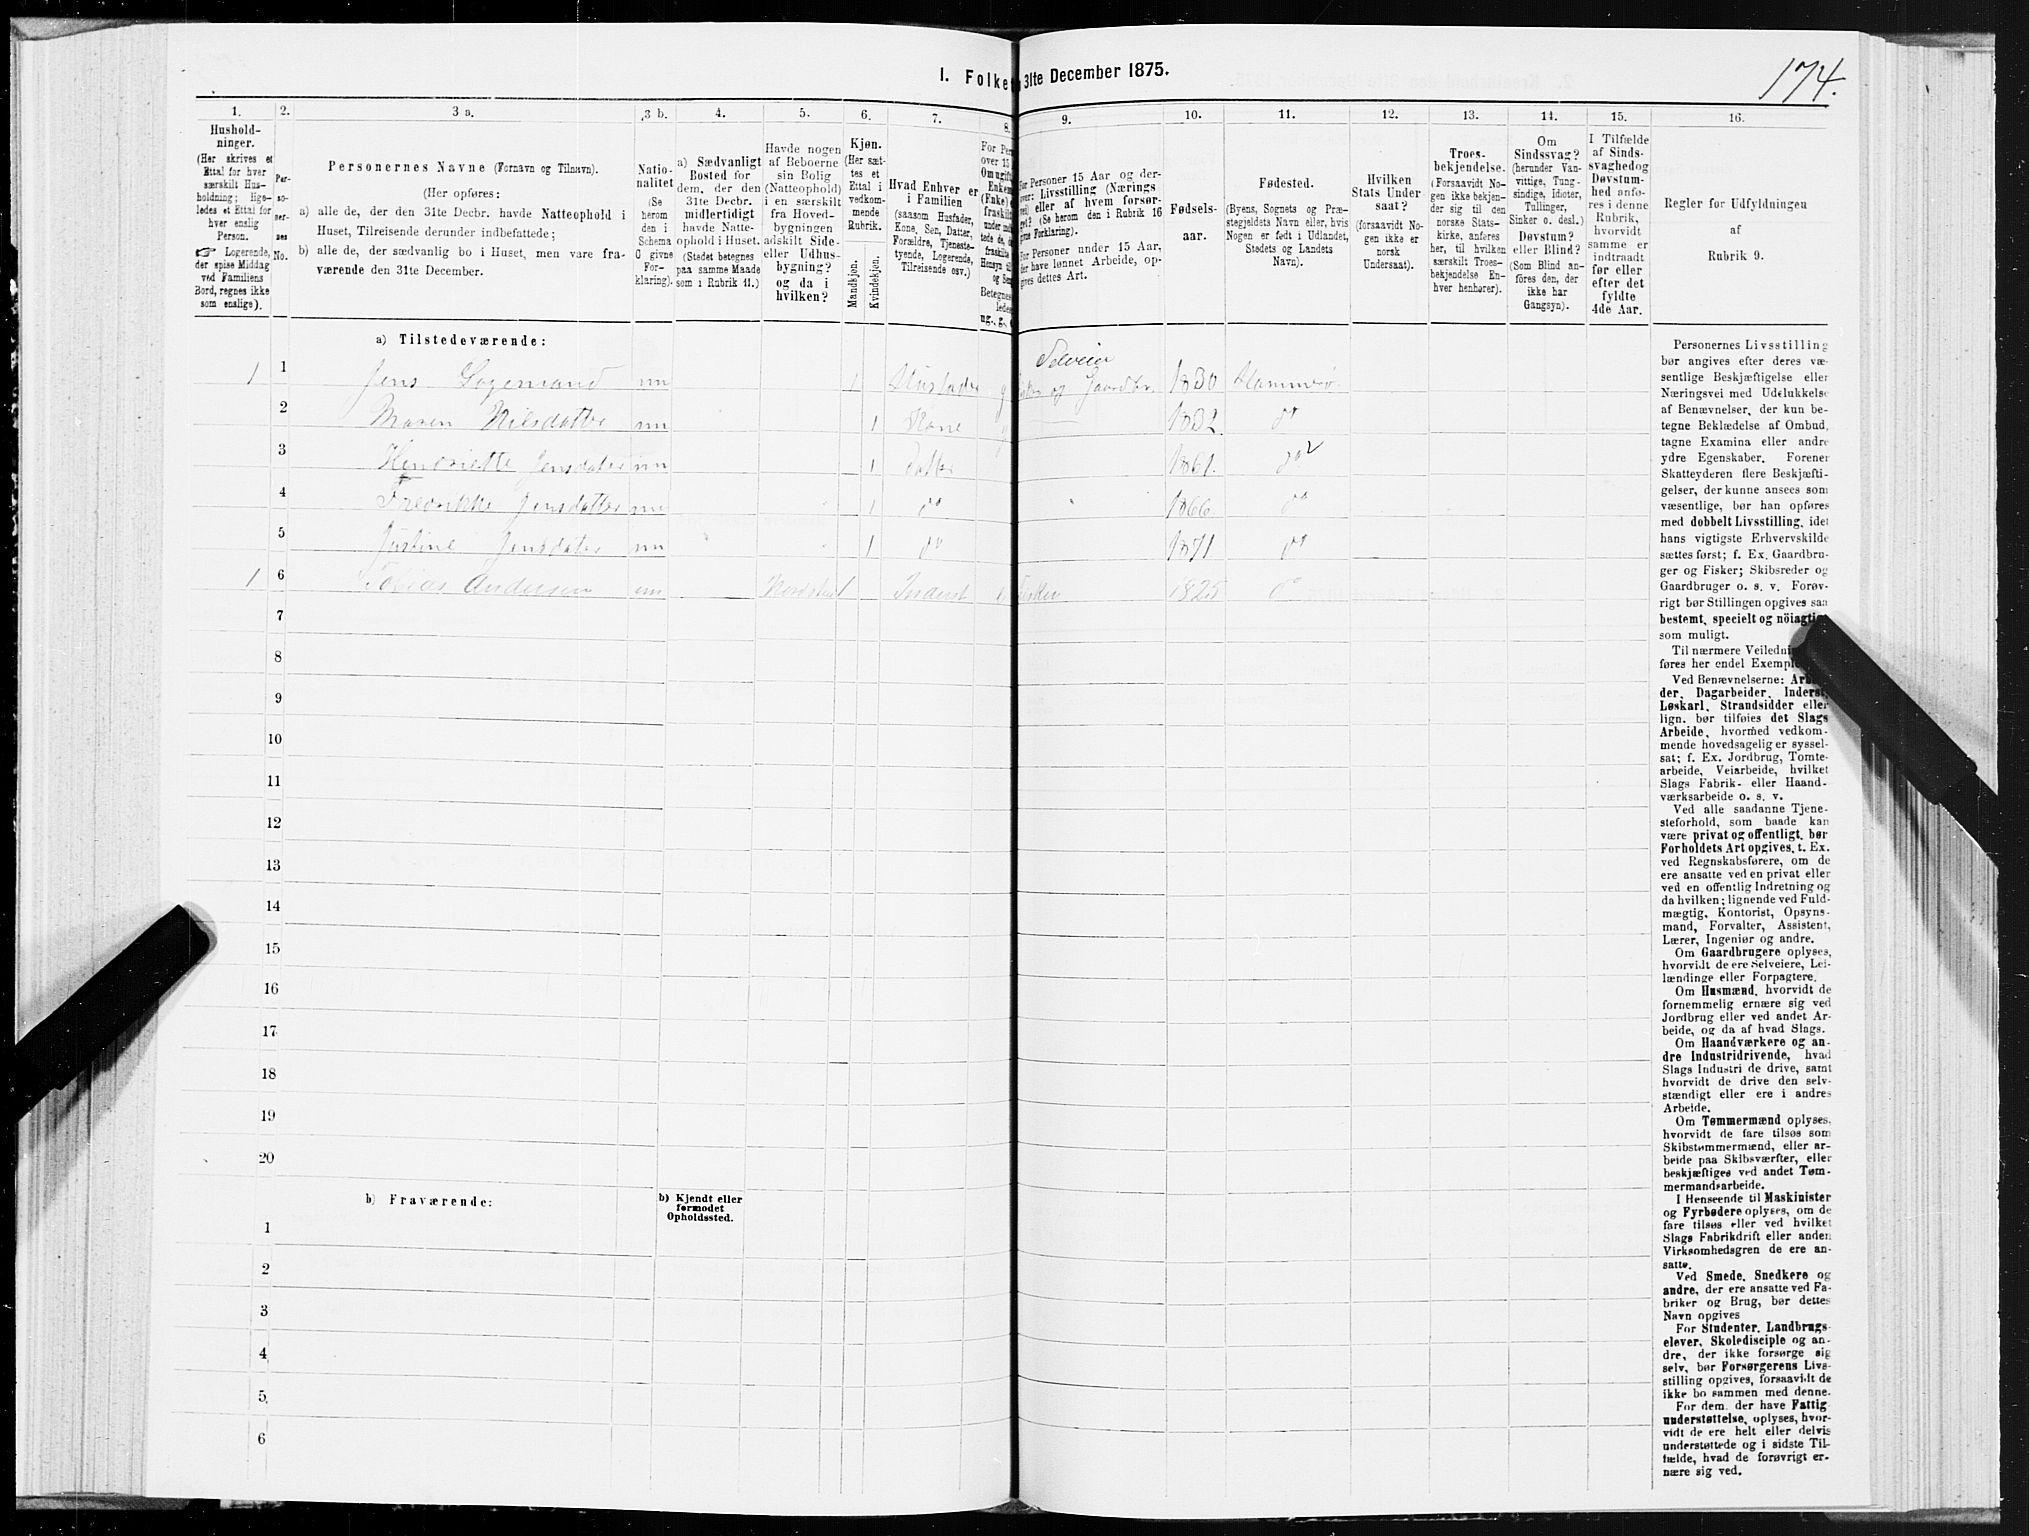 I. Folket
31te December 1875.
174.
1.
2.
3 a.
3 b.
4.
5.
6.
7.
8.
9.
10.
11.
12.
13.
14.
15.
16.
Hushold-
ninger.
(Her skrives et
Ettal for hver
særskilt Hus-
holdning; lige-
ledes et Ettal for
hver enslig
Person.
☞ Logerende,
der spise Middag
ved Familiens
Bord, regnes ikke
som enslige).
Per-
so-
ner-
nes
No.
Personernes Navne (Fornavn og Tilnavn).
(Her opføres:
a) alle de, der den 31te Decbr. havde Natteophold i
Huset, Tilreisende derunder indbefattede;
b) alle de, der sædvanlig bo i Huset, men vare fra-
værende den 31te December.
Natio-
nalitet
(Se
herom
den i
Schema
O givne
For-
klaring).
a) Sædvanligt
Bosted for
dem, der den
31te Decbr.
midlertidigt
havde Natte-
ophold i Huset.
(Stedet betegnes
paa samme Maade
som i Rubrik 11.)
Havde nogen
af Beboerne
sin Bolig
(Natteophold)
i en særskilt
fra Hoved-
bygningen
adskilt Side-
eller Udhus-
bygning?
og da i
hvilken?
Kjøn.
(Her sæt-
tes et
Ettal i
vedkom-
mende
Rubrik.
Mandkjøn.
Kvindekjøn.
Hvad Enhver er
i Familien
(saasom Husfader,
Kone, Søn, Datter,
Forældre, Tjeneste-
tyende, Logerende,
Tilreisende osv.)
For Per
over 15
Om ugift
Enkem
(Enke) e
fraskilt
under ind
tede de,
fraskilte
Hensyn til
og Sen
Betegnes
lede
ug., g.,
For Personer 15 Aar og der-
over: Livsstilling (Nærings
vei) eller af hvem forsør-
get? (Se herom den i Rubrik 16
givne Forklaring).
For Personer under 15 Aar,
der have lønnet Arbeide, op-
gives dettes Art.
Fødsels-
aar.
Fødested.
(Byens, Sognets og Præ-
stegjeldets Navn eller, hvis
Nogen er født i Udlandet,
Stedets og Landets
Navn).
Hvilken
Stats Under-
saat?
(forsaavidt No-
gen ikke er
norsk
Undersaat).
Troes-
bekjendelse.
(Forsaavidt No-
gen ikke bekjen-
der sig til den
norske Stats-
kirke, anføres
her, til hvilken
særskilt Troes-
bekjendelse En-
hver henhører).
Om
Sindssvag?
(herunder Van-
vittige, Tung-
sindige, Idioter,
Tullinger,
Sinker o. desl.)
Døvstum?
eller Blind?
(Som Blind an-
føres den, der
ikke har
Gangsyn).
I Tilfælde
af Sinds-
svaghed og
Døvstum-
hed anfø-
res i denne
Rubrik,
hvorvidt
samme er
indtraadt
før eller
efter det
fyldte
4de Aar.
Regler for Udfyldningen
af
Rubrik 9.
a) Tilstedeværende:
Selveier
1 1 Jens nn 1 Husfader g og Gaardbr. 1830 Hammerø
2 Maren Nilsdatter nn 1 Kone 1832 do
3 Henriette Jensdatter nn 1 Datter 1861. do
4 Fredrikke Jensdatter nn 1 do 1866 do
5 Justine Jensdatter nn 1 do 1871 do
1 6 Tobias Andersen nn 1 Inderst Fisker 1825 do
7
8
9
10
11
12
13
14
15
16
17
18
19
20
b) Fraværende:
b) Kjendt eller
formodet
Opholdssted.
1
2
3
4
5
6
Personernes Livsstilling
bør angives efter deres væ-
sentlige Beskjæftigelse eller
Næringsvei med Udelukkelse
af Benævnelser, der kun be-
tegne Beklædelse af Ombud,
tagne Examina eller andre
ydre Egenskaber. Forener
Skatteyderen flere Beskjæfti-
gelser, der kunne ansees som
væsentlige, bør han opføres
med dobbelt Livsstilling, idet
hans vigtigste Erhvervskilde
sættes først; f. Ex. Gaardbru-
ger og Fisker; Skibsreder og
Gaardbruger o. s. v. Forøv-
rigt bør Stillingen opgives saa
bestemt, specielt og nöiagtig
som muligt.
Til nærmere Veiledni
føres her endel Exempl
Ved Benævnelserne: Arb
der, Dagarbeider, Inderst,
Løskarl, Strandsidder eller
lign. bør tilføies det Slags
Arbeide, hvormed vedkom-
mende hovedsagelig er syssel-
sat; f. Ex. Jordbrug, Tomte-
arbeide, Veiarbeide, hvilket
Slags Fabrik- eller Haand-
værksarbeide o. s. v.
Ved alle saadanne Tjene-
steforhold, som baade kan
være privat og offentligt, bør
Forholdets Art opgives, t. Ex.
ved Regnskabsførere, om de
ere ansatte ved en privat eller
ved en offentlig Indretning og
da hvilken; lignende ved Fuld-
mægtig, Kontorist, Opsyns-
mand, Forvalter, Assistent,
Lærer, Ingeniør og andre.
Om Gaardbrugere oplyses,
hvorvidt de ere Selveiere, Lei-
lændinge eller Forpagtere.
Om Husmænd, hvorvidt de
fornemmelig ernære sig ved
Jordbrug eller ved andet Ar-
beide, og da af hvad Slags.
Om Haandværkere og an-
dre Industridrivende, hvad
Slags Industri de drive, samt
hvorvidt de drive den selv-
stændigt eller ere i andres
Arbeide.
Om Tømmermænd oplyses,
hvorvidt de fare tilsøs som
Skibstømmermænd, eller ar-
beide paa Skibsværfter, eller
beskjæftiges ved andet Tøm-
mermandsarbeide.
I Henseende til Maskinister
og Fyrbødere oplyses, om de
fare tilsøs eller ved hvilket
Slags Fabrikdrift eller anden
Virksomhedsgren de ere an-
satte.
Ved Smede, Snedkere og
andre, der ere ansatte ved Fa-
briker og Brug, bør dettes
Navn opgives
For Studenter, Landbrugs-
elever, Skoledisciple og an-
dre, der ikke forsørge sig
selv, bør Forsørgerens Livs-
stilling opgives, forsaavidt de
ikke bo sammen med denne.
For dem, der have Fattig-
understøttelse, oplyses, hvor-
vidt de ere helt eller delvis
understøttede og i sidste Til-
fælde, hvad de forøvrigt er-
nære sig ved.